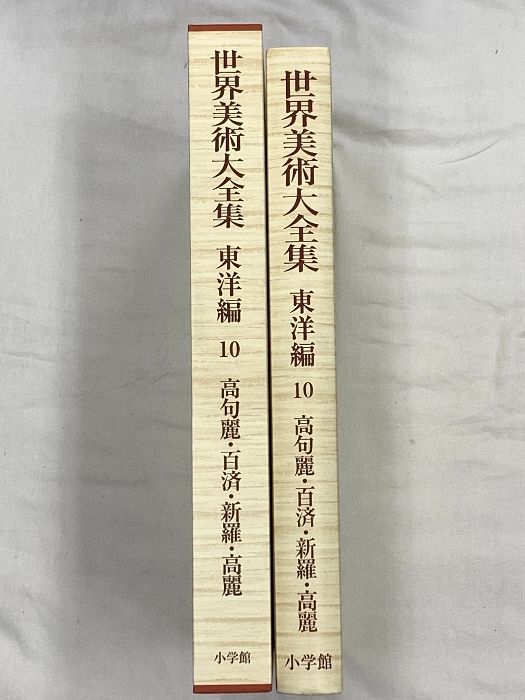 世界美術大全集 東洋編 10 高句麗・百済・新羅・高麗
小学館
世界美術大全集 東洋編 10 高句麗・百済・新羅・高麗
小学館